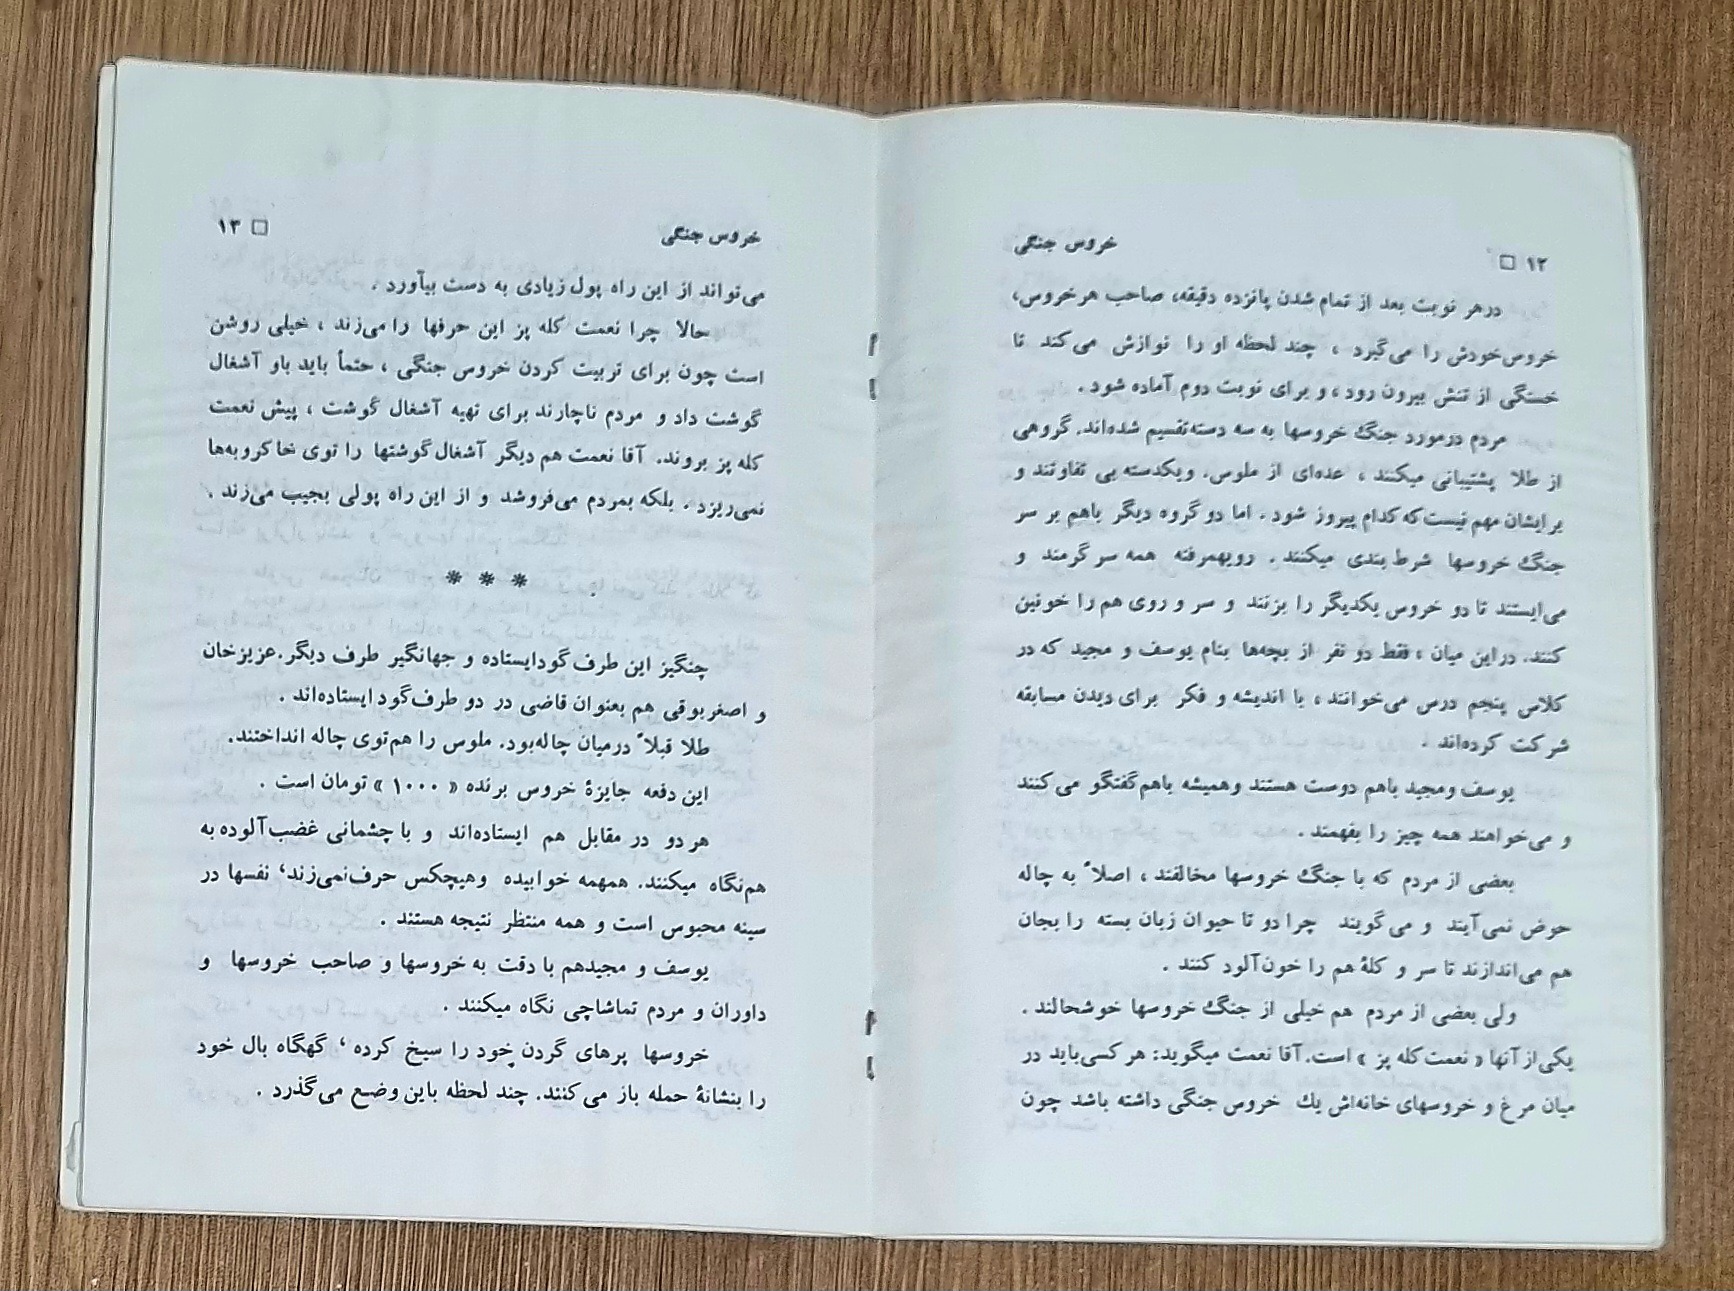 ۱۲ □ خروس جنگی
درهر نوبت بعد از تمام شدن پانزده دقیقه، صاحب هرخروس،
خروس‌خودش را می‌گیرد ، چند لحظه او را نوازش می‌کند تا
خستگی از تنش بیرون رود ، و برای نوبت دوم آماده شود .
مردم درمورد جنگ خروسها به سه دسته‌تقسیم شده‌اند. گروهی
از طلا پشتیبانی میکنند ، عده‌ای از ملوس. ویکدسته بی تفاوتند و
برایشان مهم نیست‌که کدام پیروز شود . اما دو گروه دیگر باهم بر سر
جنگ خروسها شرط‌بندی میکنند . رویهمرفته همه سرگرمند و
می‌ایستند تا دو خروس یکدیگر را بزنند و سر و روی هم را خونین
کنند. دراین میان ، فقط دو نفر از بچه‌ها بنام یوسف و مجید که در
کلاس پنجم درس می‌خوانند ، با اندیشه و فکر برای دیدن مسابقه
شرکت کرده‌اند .
یوسف ومجید باهم دوست هستند وهمیشه باهم‌گفتگو می‌کنند
و می‌خواهند همه چیز را بفهمند .
بعضی از مردم که با جنگ خروسها مخالفند ، اصلاً به چاله
حوض نمی‌آیند و می‌گویند چرا دو تا حیوان زبان بسته را بجان
هم می‌اندازند تا سر و کلهٔ هم را خون‌آلود کنند .
ولی بعضی از مردم هم خیلی از جنگ خروسها خوشحالند .
یکی‌از آنها « نعمت کله پز » است. آقا نعمت میگوید: هر کسی‌باید در
میان مرغ و خروسهای خانه‌اش یك خروس جنگی داشته باشد چون
خروس جنگی □ ۱۳
می‌تواند از این راه پول زیادی به دست بیآورد .
حالا چرا نعمت کله پز این حرفها را می‌زند ، خیلی روشن
است چون برای تربیت کردن خروس جنگی ، حتماً باید باو آشغال
گوشت داد و مردم ناچارند برای تهیه آشغال گوشت ، پیش نعمت
کله پز بروند. آقا نعمت هم دیگر آشغال‌گوشتها را توی خاکروبه‌ها
نمی‌ریزد . بلکه بمردم می‌فروشد و از این راه پولی بجیب می‌زند .
* * *
چنگیز این طرف گودایستاده و جهانگیر طرف دیگر.عزیزخان
و اصغربوقی هم بعنوان قاضی در دو طرف‌گود ایستاده‌اند .
طلا قبلاً درمیان چاله‌بود. ملوس را هم‌توی چاله انداختند.
این دفعه جایزهٔ خروس برنده « ۱۰۰۰ » تومان است .
هر دو در مقابل هم ایستاده‌اند و با چشمانی غضب‌آلوده به
هم‌نگاه میکنند. همهمه خوابیده وهیچکس حرف‌نمی‌زند، نفسها در
سینه محبوس است و همه منتظر نتیجه هستند .
یوسف و مجیدهم با دقت به خروسها و صاحب خروسها و
داوران و مردم تماشاچی نگاه میکنند .
خروسها پرهای گردن خود را سیخ کرده ، گهگاه بال خود
را بنشانهٔ حمله باز می‌کنند. چند لحظه باین وضع می‌گذرد .